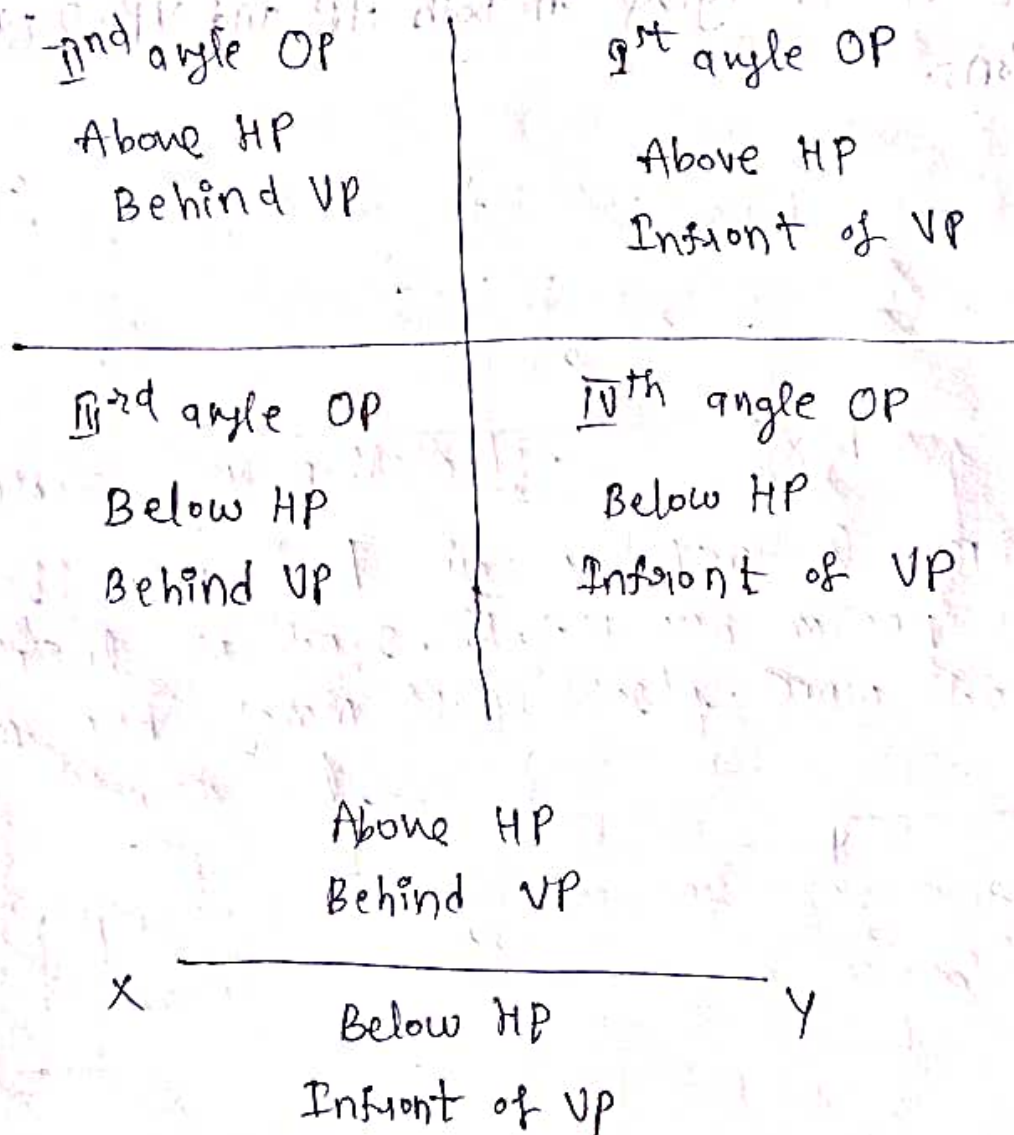 IInd angle OP
Above HP
Behind VP
Ist angle OP
Above HP
Infront of VP
IIIrd angle OP
Below HP
Behind VP
IVth angle OP
Below HP
Infront of VP
Above HP
Behind VP
X Y
Below HP
Infront of VP